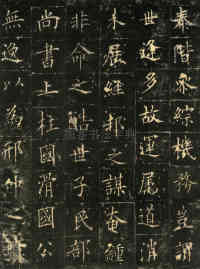 泰階衆綜機務豈謂
世逢多故運屬道消
未展經邦之謀奄鍾
非命之酷世子民部
尚書上柱國滑國公
無逸以為邢山之